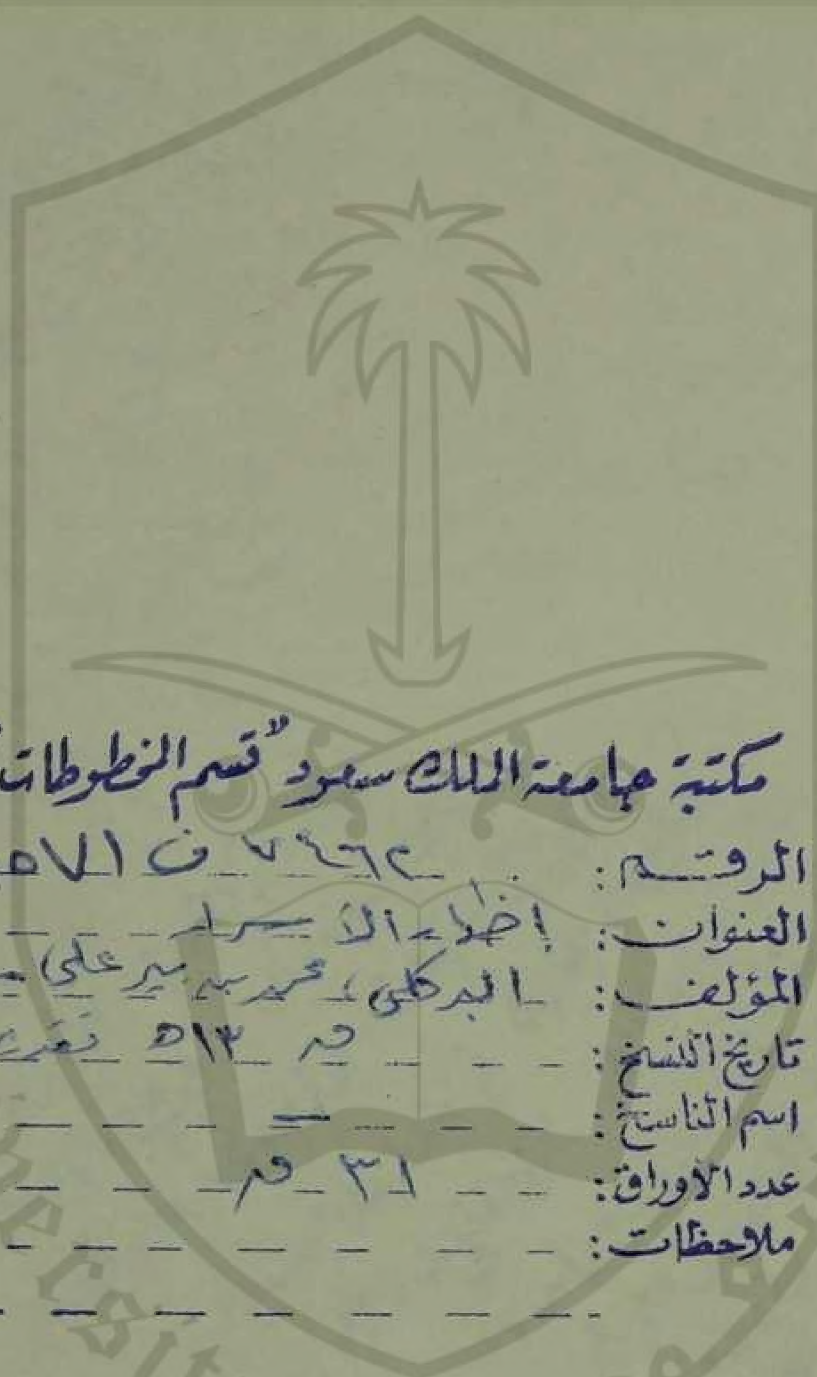 مكتبة جامعة الملك سعود "قسم المخطوطات"
الرقم: ٧٤٦٢ ف ١٥٧١
العنوان: إظهار الأسرار
المؤلف: البركلي، محمد بن بير علي
تاريخ النسخ: ق ١٣ه
اسم الناسخ: —
عدد الأوراق: ٣١ ق
ملاحظات: